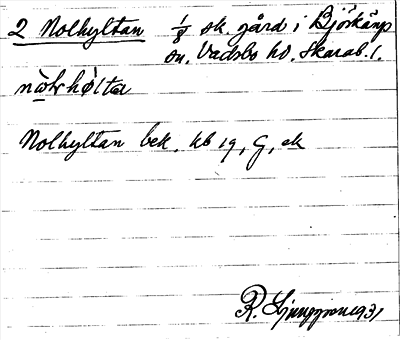 2 Nolhyltan 1/8 sk. gård i Björkäng
sn. Vadsbo hd. Skarab. l.
Nolhyltan bek. kb 19, G, ek
R. Ljunggren 1931